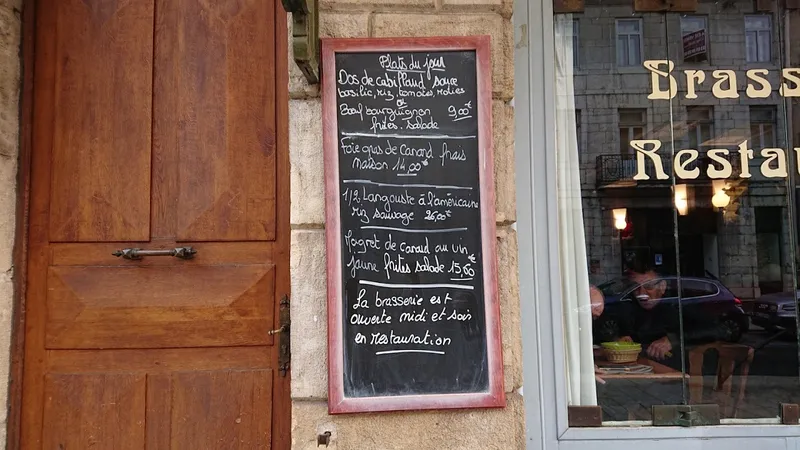 Plats du jour
Dos de cabillaud, sauce
basilic, riz, tomates, roties
ou
Bœuf bourguignon 9,00€
frites. salade
Foie gras de canard frais
maison 14,00€
1/2 Langouste à l'américaine
riz sauvage 26,00€
Magret de canard au vin
jaune frites salade 15,60€
La brasserie est
ouverte midi et soir
en restauration
Brass
Restau